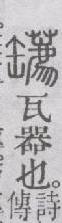 瓦器也。
詩
傳